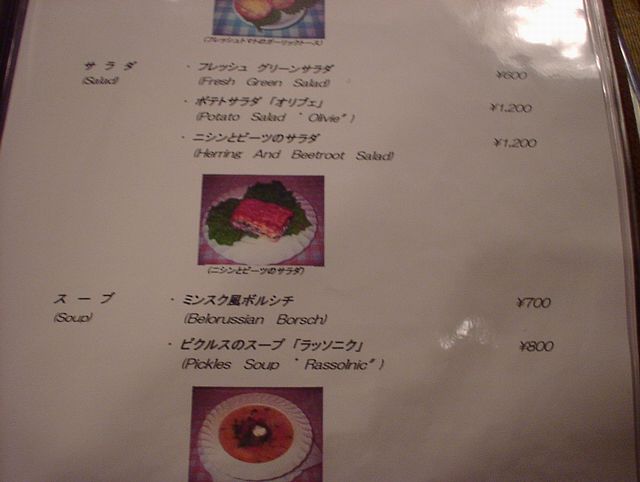 (フレッシュトマトのガーリックトース)
サラダ ・フレッシュ グリーンサラダ ¥600
(Salad) (Fresh Green Salad)
・ポテトサラダ「オリブェ」 ¥1,200
(Potato Salad " Olivie")
・ニシンとビーツのサラダ ¥1,200
(Herring And Beetroot Salad)
(ニシンとビーツのサラダ)
スープ ・ミンスク風ボルシチ ¥700
(Soup) (Belorussian Borsch)
・ピクルスのスープ「ラッソニク」 ¥800
(Pickles Soup " Rassolnic")